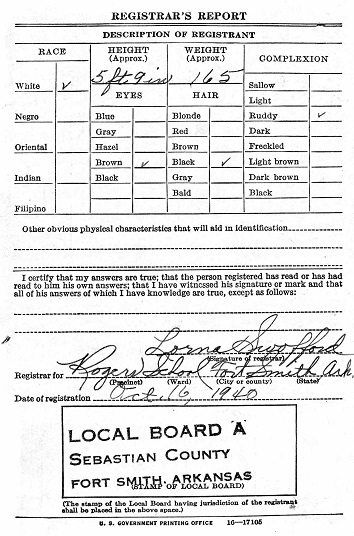 REGISTRAR'S REPORT
DESCRIPTION OF REGISTRANT
RACE
HEIGHT (Approx.)
WEIGHT (Approx.)
COMPLEXION
5 ft 9 in 165
White ✓
EYES
HAIR
Sallow
Light
Negro
Blue
Blonde
Ruddy ✓
Gray
Red
Dark
Oriental
Hazel
Brown
Freckled
Brown ✓
Black ✓
Light brown
Indian
Black
Gray
Dark brown
Bald
Black
Filipino
Other obvious physical characteristics that will aid in identification
I certify that my answers are true; that the person registered has read or has had
read to him his own answers; that I have witnessed his signature or mark and that
all of his answers of which I have knowledge are true, except as follows:
Lorna Swofford
(Signature of registrar)
Registrar for Rogers School Fort Smith Ark.
(Precinct) (Ward) (City or county) (State)
Date of registration Oct. 16, 1940
LOCAL BOARD A
SEBASTIAN COUNTY
FORT SMITH, ARKANSAS
(STAMP OF LOCAL BOARD)
(The stamp of the Local Board having jurisdiction of the registrant
shall be placed in the above space.)
U. S. GOVERNMENT PRINTING OFFICE 16—17105